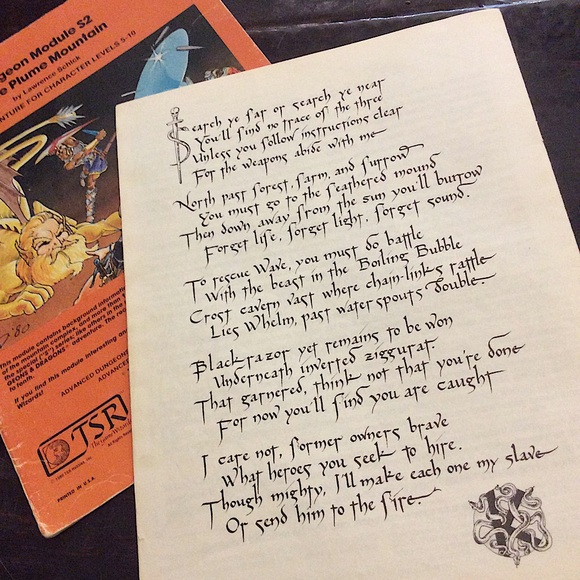 geon Module S2
e Plume Mountain
by Lawrence Schick
NTURE FOR CHARACTER LEVELS 5-10
This module contains background informati
of the mountain complex, and more than
the special series like others in the
GEONS & DRAGONS™ adventure. The
to tenth
If you find this module interesting
Wizards!
ADVANCED
TSR
The Game Wizards
PRINTED IN U.S.A.
Search ye far or search ye near
You'll find no trace of the three
Unless you follow instructions clear
For the weapons abide with me
North past forest, farm, and furrow
You must go to the feathered mound
Then down away from the sun you'll burrow
Forget life, forget light, forget sound.
To rescue Wave, you must do battle
With the beast in the Boiling Bubble
Crost cavern vast where chain-links rattle
Lies Whelm, past water-spouts double.
Blackrazor yet remains to be won
Underneath inverted ziggurat.
That garnered, think not that you're done
For now you'll find you are caught
I care not, former owners brave
What heroes you seek to hire.
Though mighty, I'll make each one my slave
Or send him to the fire.